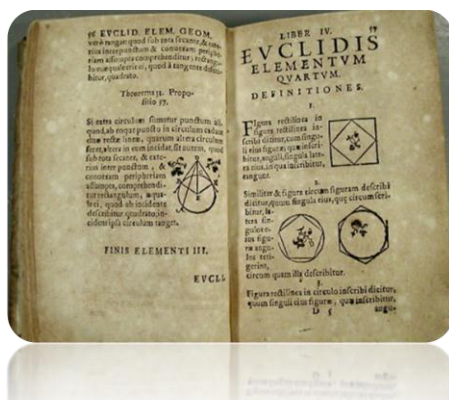 56 EVCLID. ELEM. GEOM.
verò tangat: quod sub tota secante, &
inter punctum & conuexam periphe
riam assumpta comprehenditur; rectang.
bitur, quadrato.
Theorema 31. Propo-
sitio 37.
Si extra circulum sumatur punctum ali
quod, ab eoque puncto in circulum cadant
duæ rectæ lineæ, quarum altera circulum
secet, altera in eum incidat, sit autem, quod
sub tota secante, & exte-
rius inter punctum, &
conuexam peripheriam
assumpta, comprehendi-
tur rectangulum, æqua-
le ei, quod ab incidente
describitur quadrato; in-
cidens ipsa circulum tanget.
FINIS ELEMENTI III.
EVCLI-
LIBER IV. 57
EVCLIDIS
ELEMENTVM
QVARTVM.
DEFINITIONES.
1.
Figura rectilinea in
figura rectilinea in-
scribi dicitur, cum singu-
li eius figuræ, quæ inscri-
bitur, anguli, singula late-
ra eius, in qua inscribitur,
tangunt.
2.
Similiter & figura circum figuram describi
dicitur, quum singula eius, quæ circum scri-
bitur, la-
tera sin-
gulos e-
ius figu-
ræ angu-
los teti-
gerint,
circum quam illa describitur.
3.
Figura rectilinea in circulo inscribi dicitur,
quum singuli eius figuræ, quæ inscribitur,
D 5 angu-